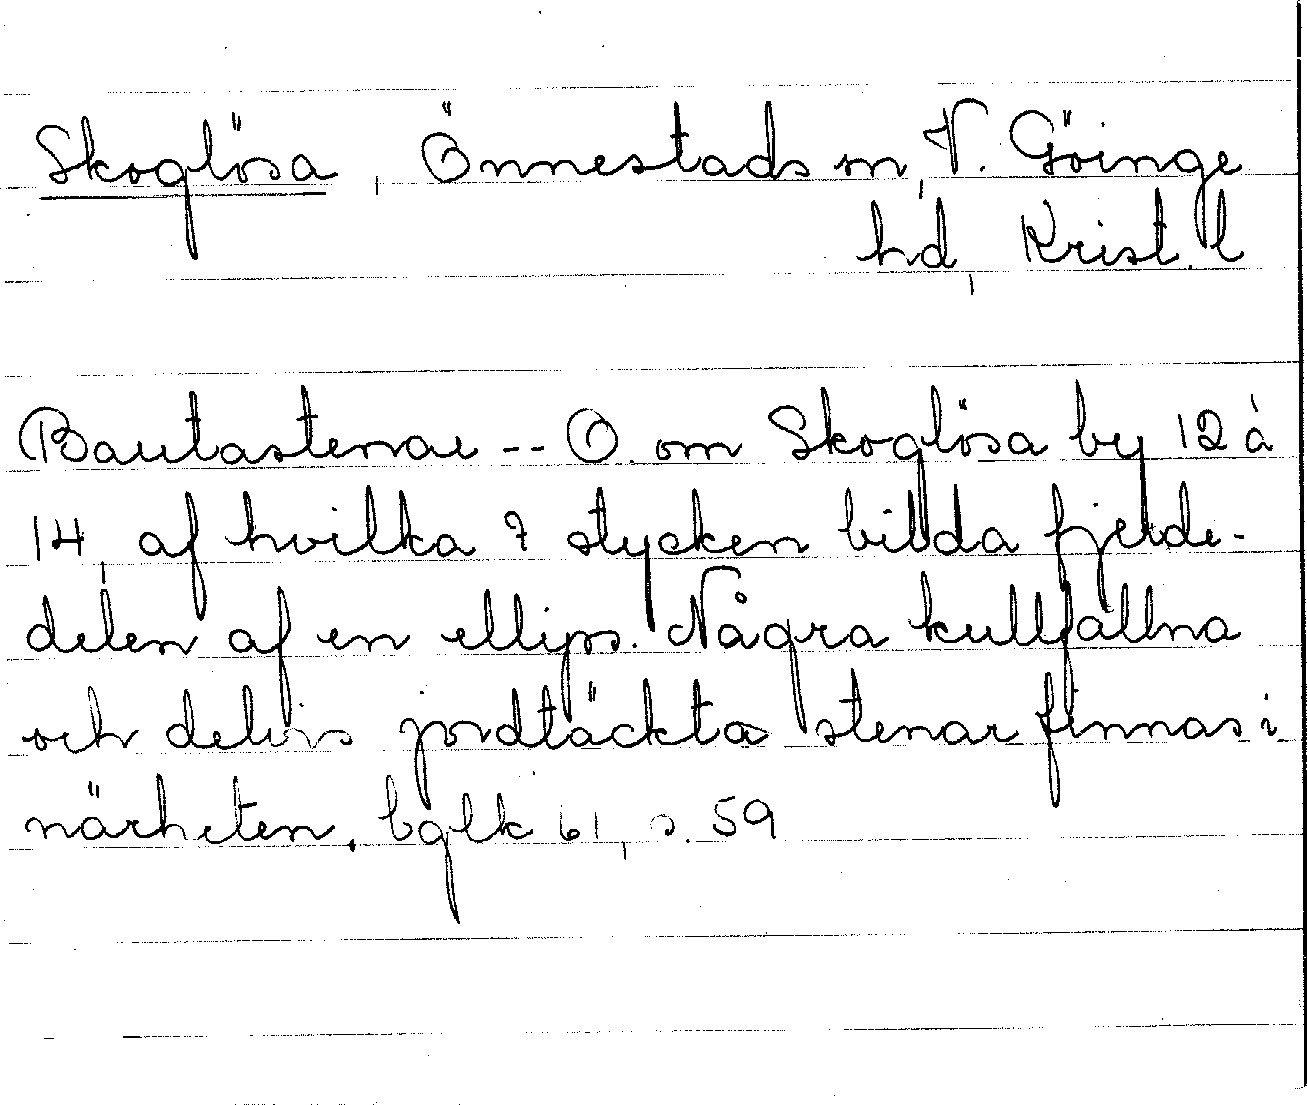 Skoglösa, Önnestads sn, V. Göinge
hd, Krist. l
Bautastenar -- O. om Skoglösa by 12 à
14, af hvilka 7 stycken bilda fjerde-
delen af en ellips. Några kullfallna
och delvis jordtäckta stenar finnas i
närheten. bglk 61, s. 59